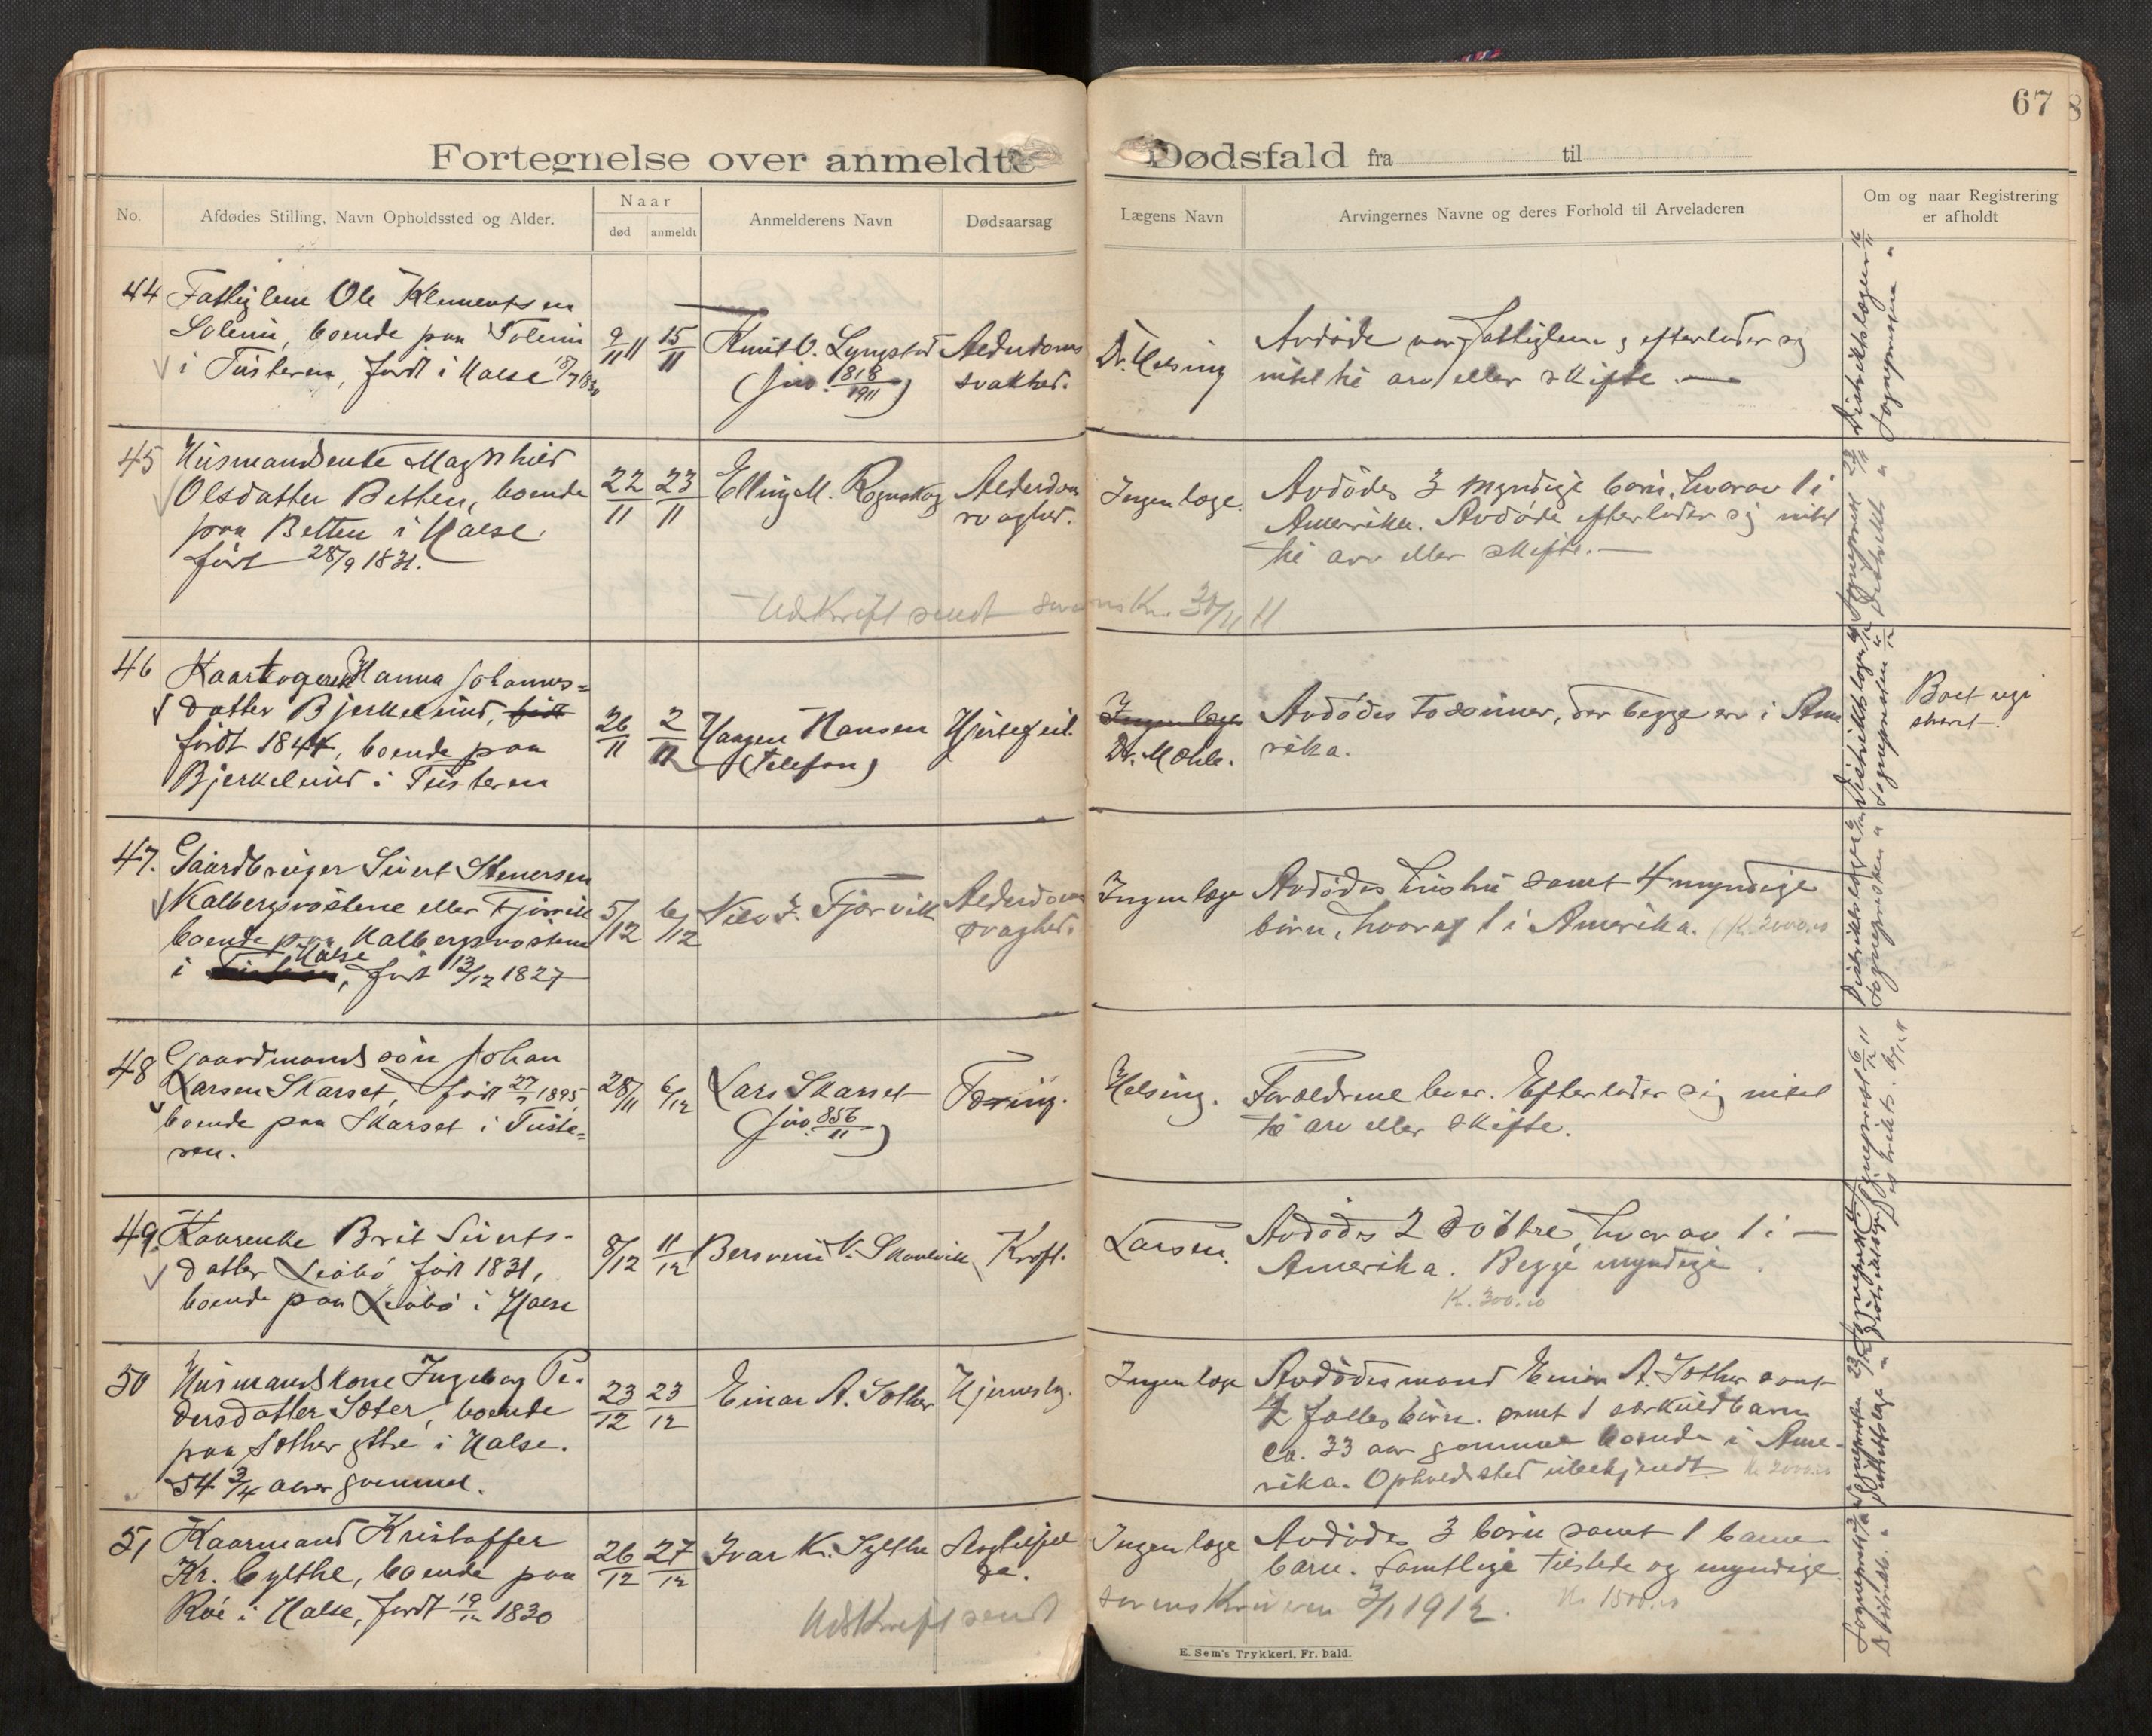 67
Fortegnelse over anmeldte Dødsfald fra til
No.
Afdødes Stilling, Navn Opholdssted og Alder.
Naar
død
anmeldt
Anmelderens Navn
Dødsaarsag
Lægens Navn
Arvingernes Navne og deres Forhold til Arveladeren
Om og naar Registrering
er afholdt
44 Fattiglem Ole Klementsen
Solem, boende paa Solem
i Tusteren, født i Halse 18/7 1830
9/11 11
15/11
Knut O. Lyngstad
(jnr. 818/1911)
Alderdoms
svakhed.
Dr. Helsing
Avdøde var fattiglem & efterlader sig
intet til arv eller skifte.
45 Husmandsenke Magnhild
Olsdatter Betten, boende
paa Betten i Halse.
født 28/9 1831.
22/11
23/11
Elling M. Rognskog
Alderdom
svaghed.
Ingen læge.
Avdødes 3 myndige børn, hvorav 1 i
Amerika. Avdøde efterlader sig intet
til arv eller skifte.
Udskrift sendt sorenskr. 30/11 11
46 Kaartager Hanna Johannes=
datter Bjerkelund, født
født 1844, boende paa
Bjerkelund i Tusteren
26/11
2/12
Haagen Hansen
(telefon)
Hjertefeil.
Ingen læge
Dr. Mohle.
Avdødes to sønner, der begge er i Ame
rika.
Boet regi
streret.
47. Gaardbruger Sivert Stenersen
Kalbergsvostene eller Fjørvik
boende paa Kalbergsvostene
i Halse, født 13/12 1827
5/12
6/12
Nils S. Fjørvik
Alderdoms
svaghed.
Ingen læge
Avdødes hustru samt 4 myndige
børn, hvorav 1 i Amerika. (Kr. 2000.00
48 Gaardmandssøn Johan
Larsen Skarset, født 27/7 1895,
boende paa Skarset i Tuste=
ren.
28/11
6/12
Lars Skarset
(jnr. 856/11)
Tæring.
Helsing.
Forældrene lever. Efterlader sig intet
til arv eller skifte.
49. Kaarenke Brit Siverts-
datter Leøbø født 1831,
boende paa Leøbø i Halse
8/12
11/12
Bersven V. Skaalvik
Kræft.
Larsen.
Avdødes 2 døttre, hvorav 1 i
Amerika. Begge myndige.
Kr. 300.00
50 Husmandskone Ingeborg Pe-
dersdatter Sæter, boende
paa Sæther ytre i Halse.
54 3/4 aar gammel.
23/12
23/12
Einar A. Sæther
Ingen læge
Avdødes mand Einar A. Sæther samt
2 fælles børn. samt 1 særkuldbarn
ca. 33 aar gammel boende i Ame-
rika. Opholdssted ubekjendt. Kr. 2000.00
51 Kaarmand Kristoffer
Kr. Gylthe, boende paa
Roe i Halse, født 19/12 1830
26/12
27/12
Ivar K. Sylthe
Ingen læge
Avdødes 3 børn samt 1 barne-
barn. Samtlige tilstede og myndige.
Udskrift sendt sorenskriveren 3/1 1912. Kr. 1500.00
E. Sem's Trykkeri, Fr. hald.